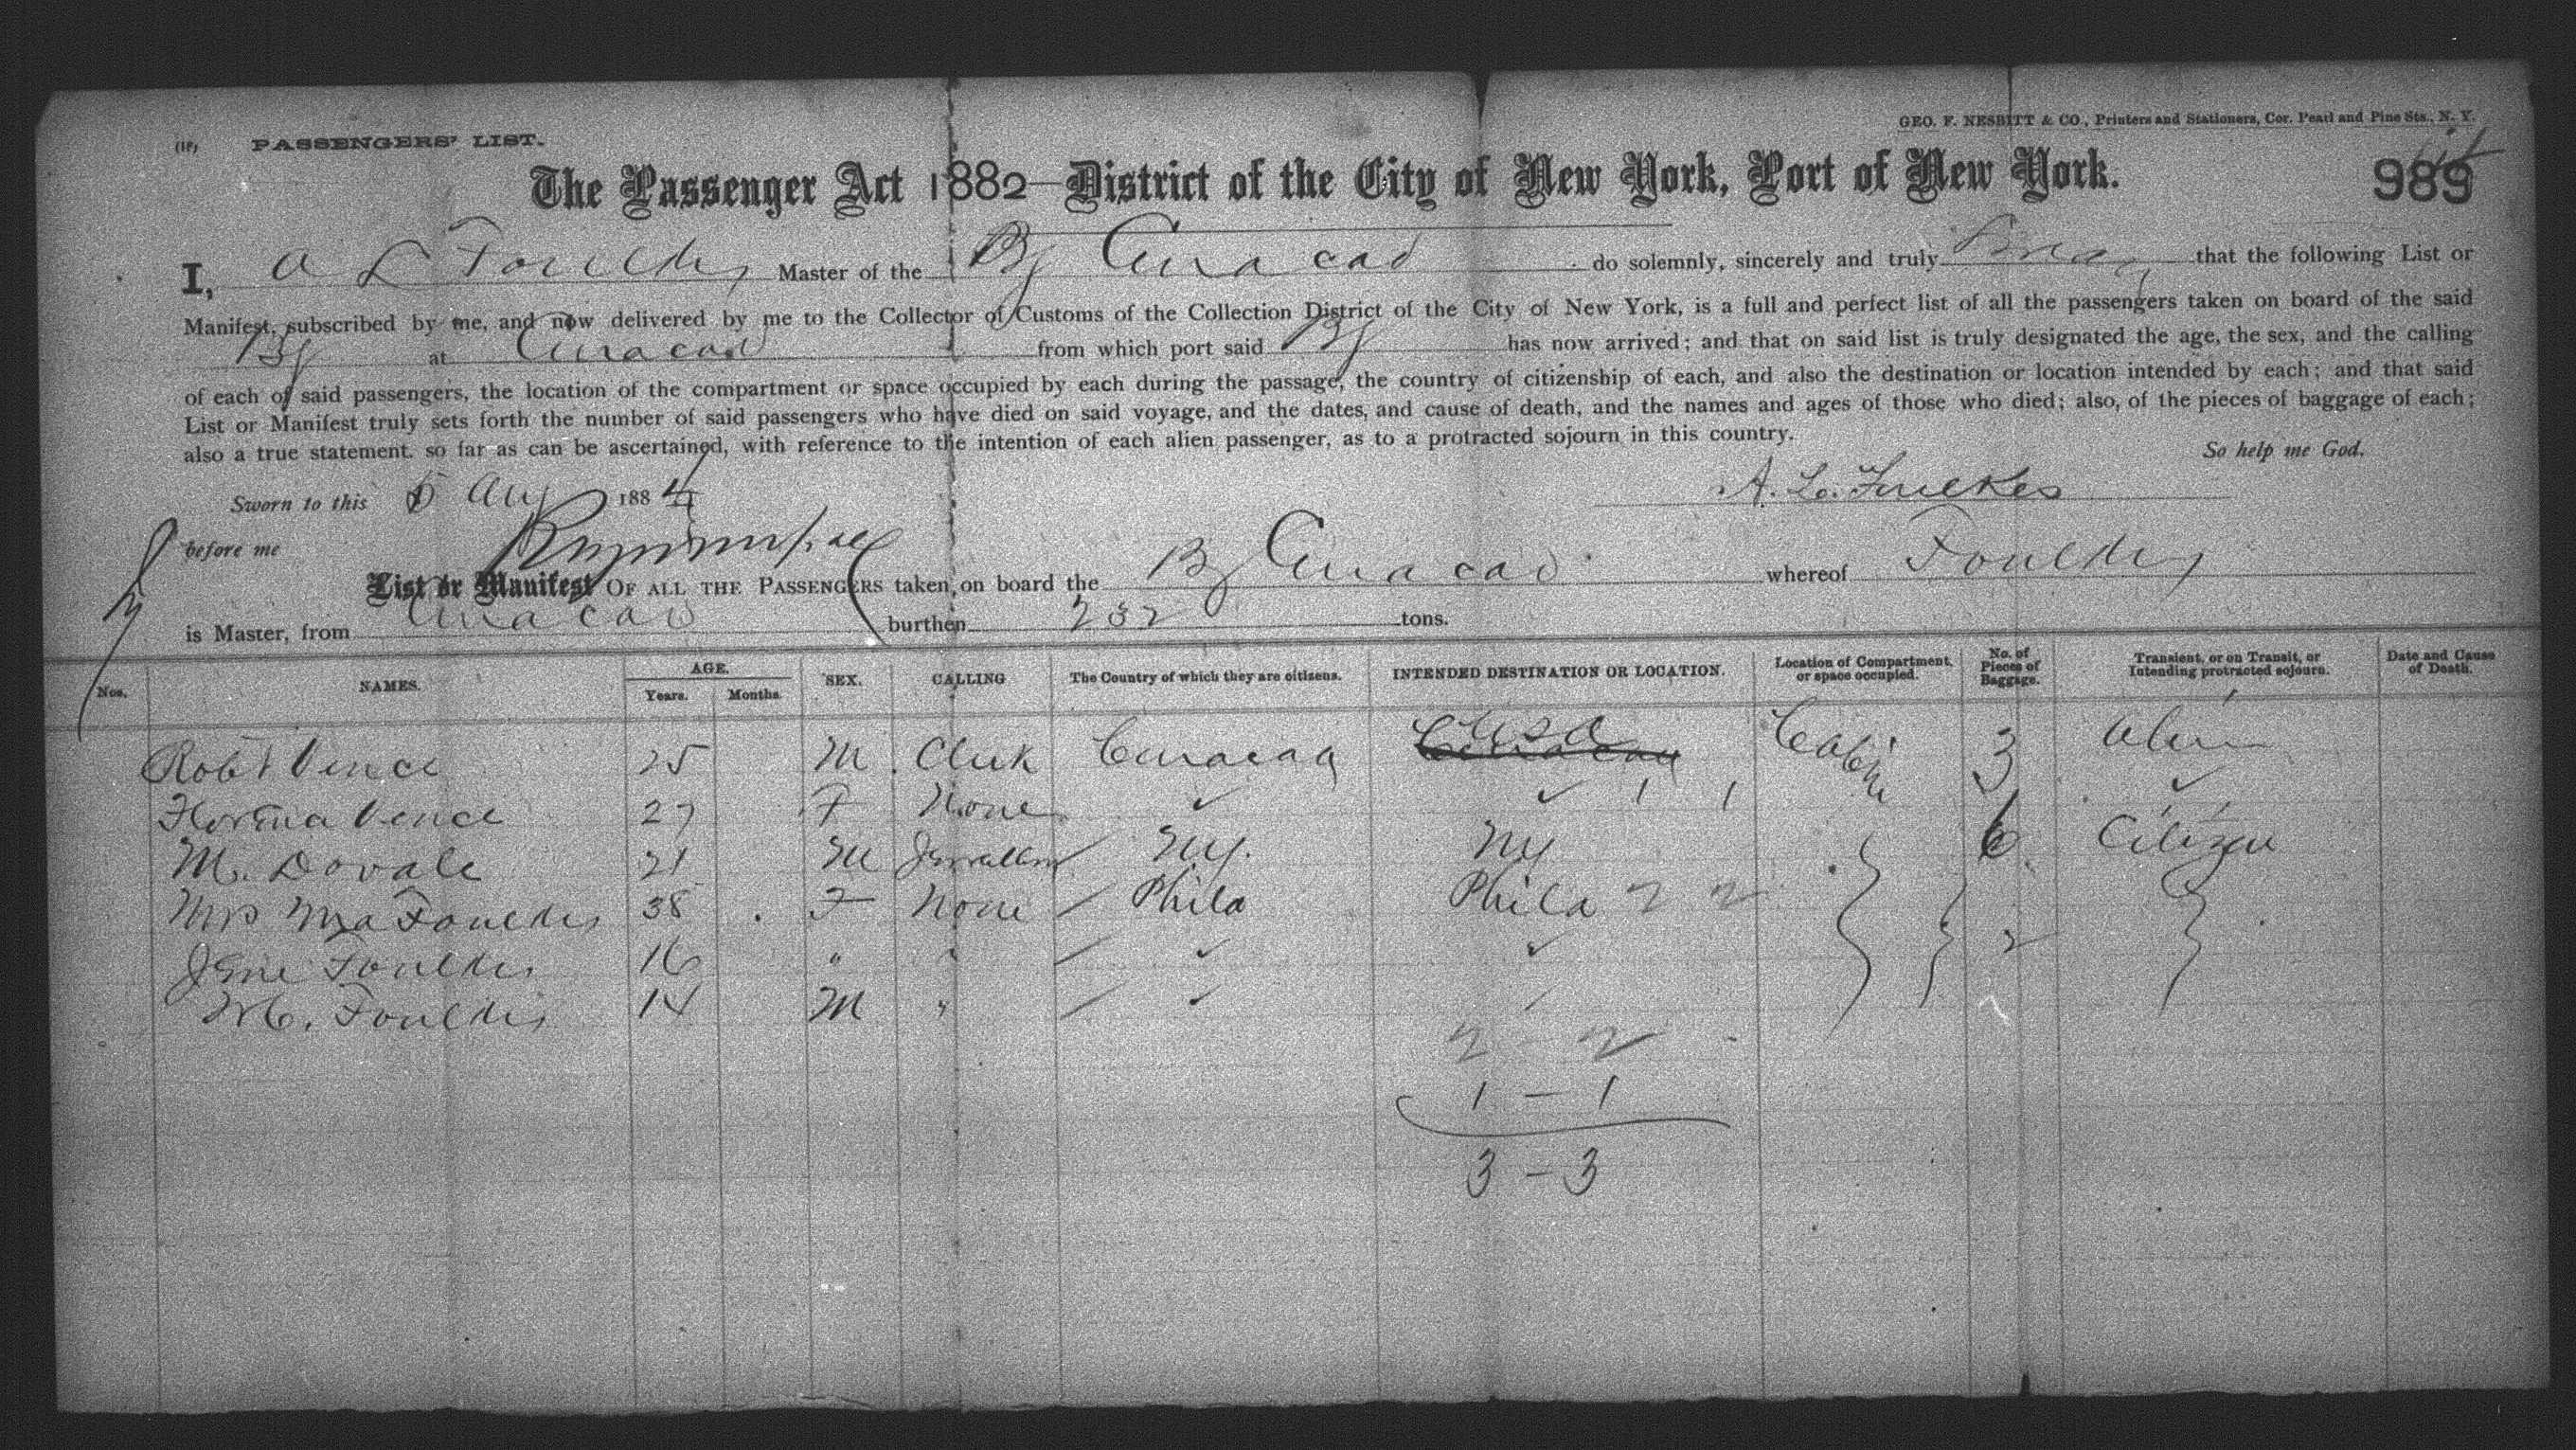 GEO. F. NESBITT & CO., Printers and Stationers, Cor. Pearl and Pine Sts., N. Y.
(1P) PASSENGERS' LIST.
989
The Passenger Act 1882—District of the City of New York, Port of New York.
I, A L Foulkes Master of the Bg Curacao do solemnly, sincerely and truly that the following List or
Manifest, subscribed by me, and now delivered by me to the Collector of Customs of the Collection District of the City of New York, is a full and perfect list of all the passengers taken on board of the said
Bg at Curacao from which port said Bg has now arrived; and that on said list is truly designated the age, the sex, and the calling
of each of said passengers, the location of the compartment or space occupied by each during the passage, the country of citizenship of each, and also the destination or location intended by each; and that said
List or Manifest truly sets forth the number of said passengers who have died on said voyage, and the dates, and cause of death, and the names and ages of those who died; also, of the pieces of baggage of each;
also a true statement. so far as can be ascertained, with reference to the intention of each alien passenger, as to a protracted sojourn in this country.
So help me God.
Sworn to this 5 Aug 1884 A. L. Foulkes
before me
List or Manifest OF ALL THE PASSENGERS taken on board the Bg Curacao whereof Foulkes
is Master, from Curacao burthen 232 tons.
Nos. NAMES. AGE. Years. Months. SEX. CALLING The Country of which they are citizens. INTENDED DESTINATION OR LOCATION. Location of Compartment, or space occupied. No. of Pieces of Baggage. Transient, or on Transit, or Intending protracted sojourn. Date and Cause of Death.
Robt Vence 25 M Clerk Curacao Curacao USA Cabin 3 Alien
Vence 27 F None ✓ ✓ 1 1 ✓
M. Dovale 21 M NY. NY 6 Citizen
Mrs Foulkes 38 F None Phila Phila 2 2
Foulkes 16 " " ✓ ✓ 2
M. Foulkes 14 M " ✓
2 - 2
1 - 1
3 - 3